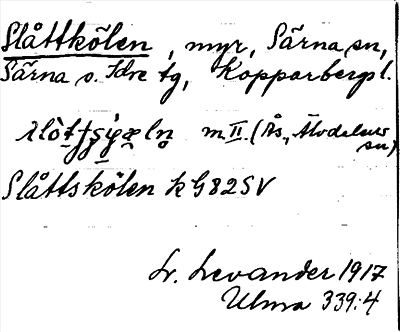 Slåttkölen, myr, Särna sn,
Särna o. Idre tg, Kopparbergs l.
m II. (Ås, Älvdalens
sn)
Slåttskölen k G82SV
L. Levander 1917
Ulma 339:4